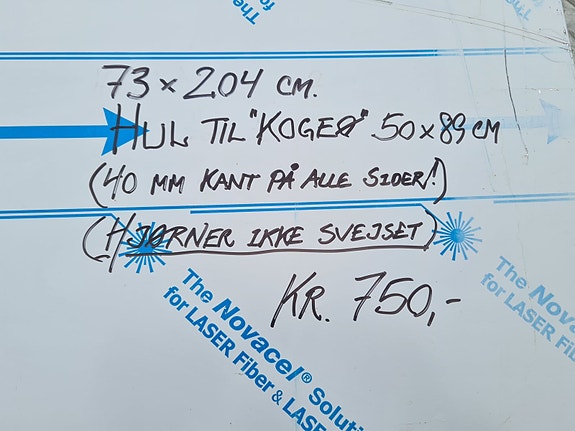 The
for
73 x 204 CM.
HUL TIL "KOGEØ" 50 x 89 CM
(40 MM KANT PÅ ALLE SIDER!)
(HJØRNER IKKE SVEJSET)
KR. 750,-
The Novacel® Soluti
for LASER Fiber & LASE
The Nova
for LASER Fib